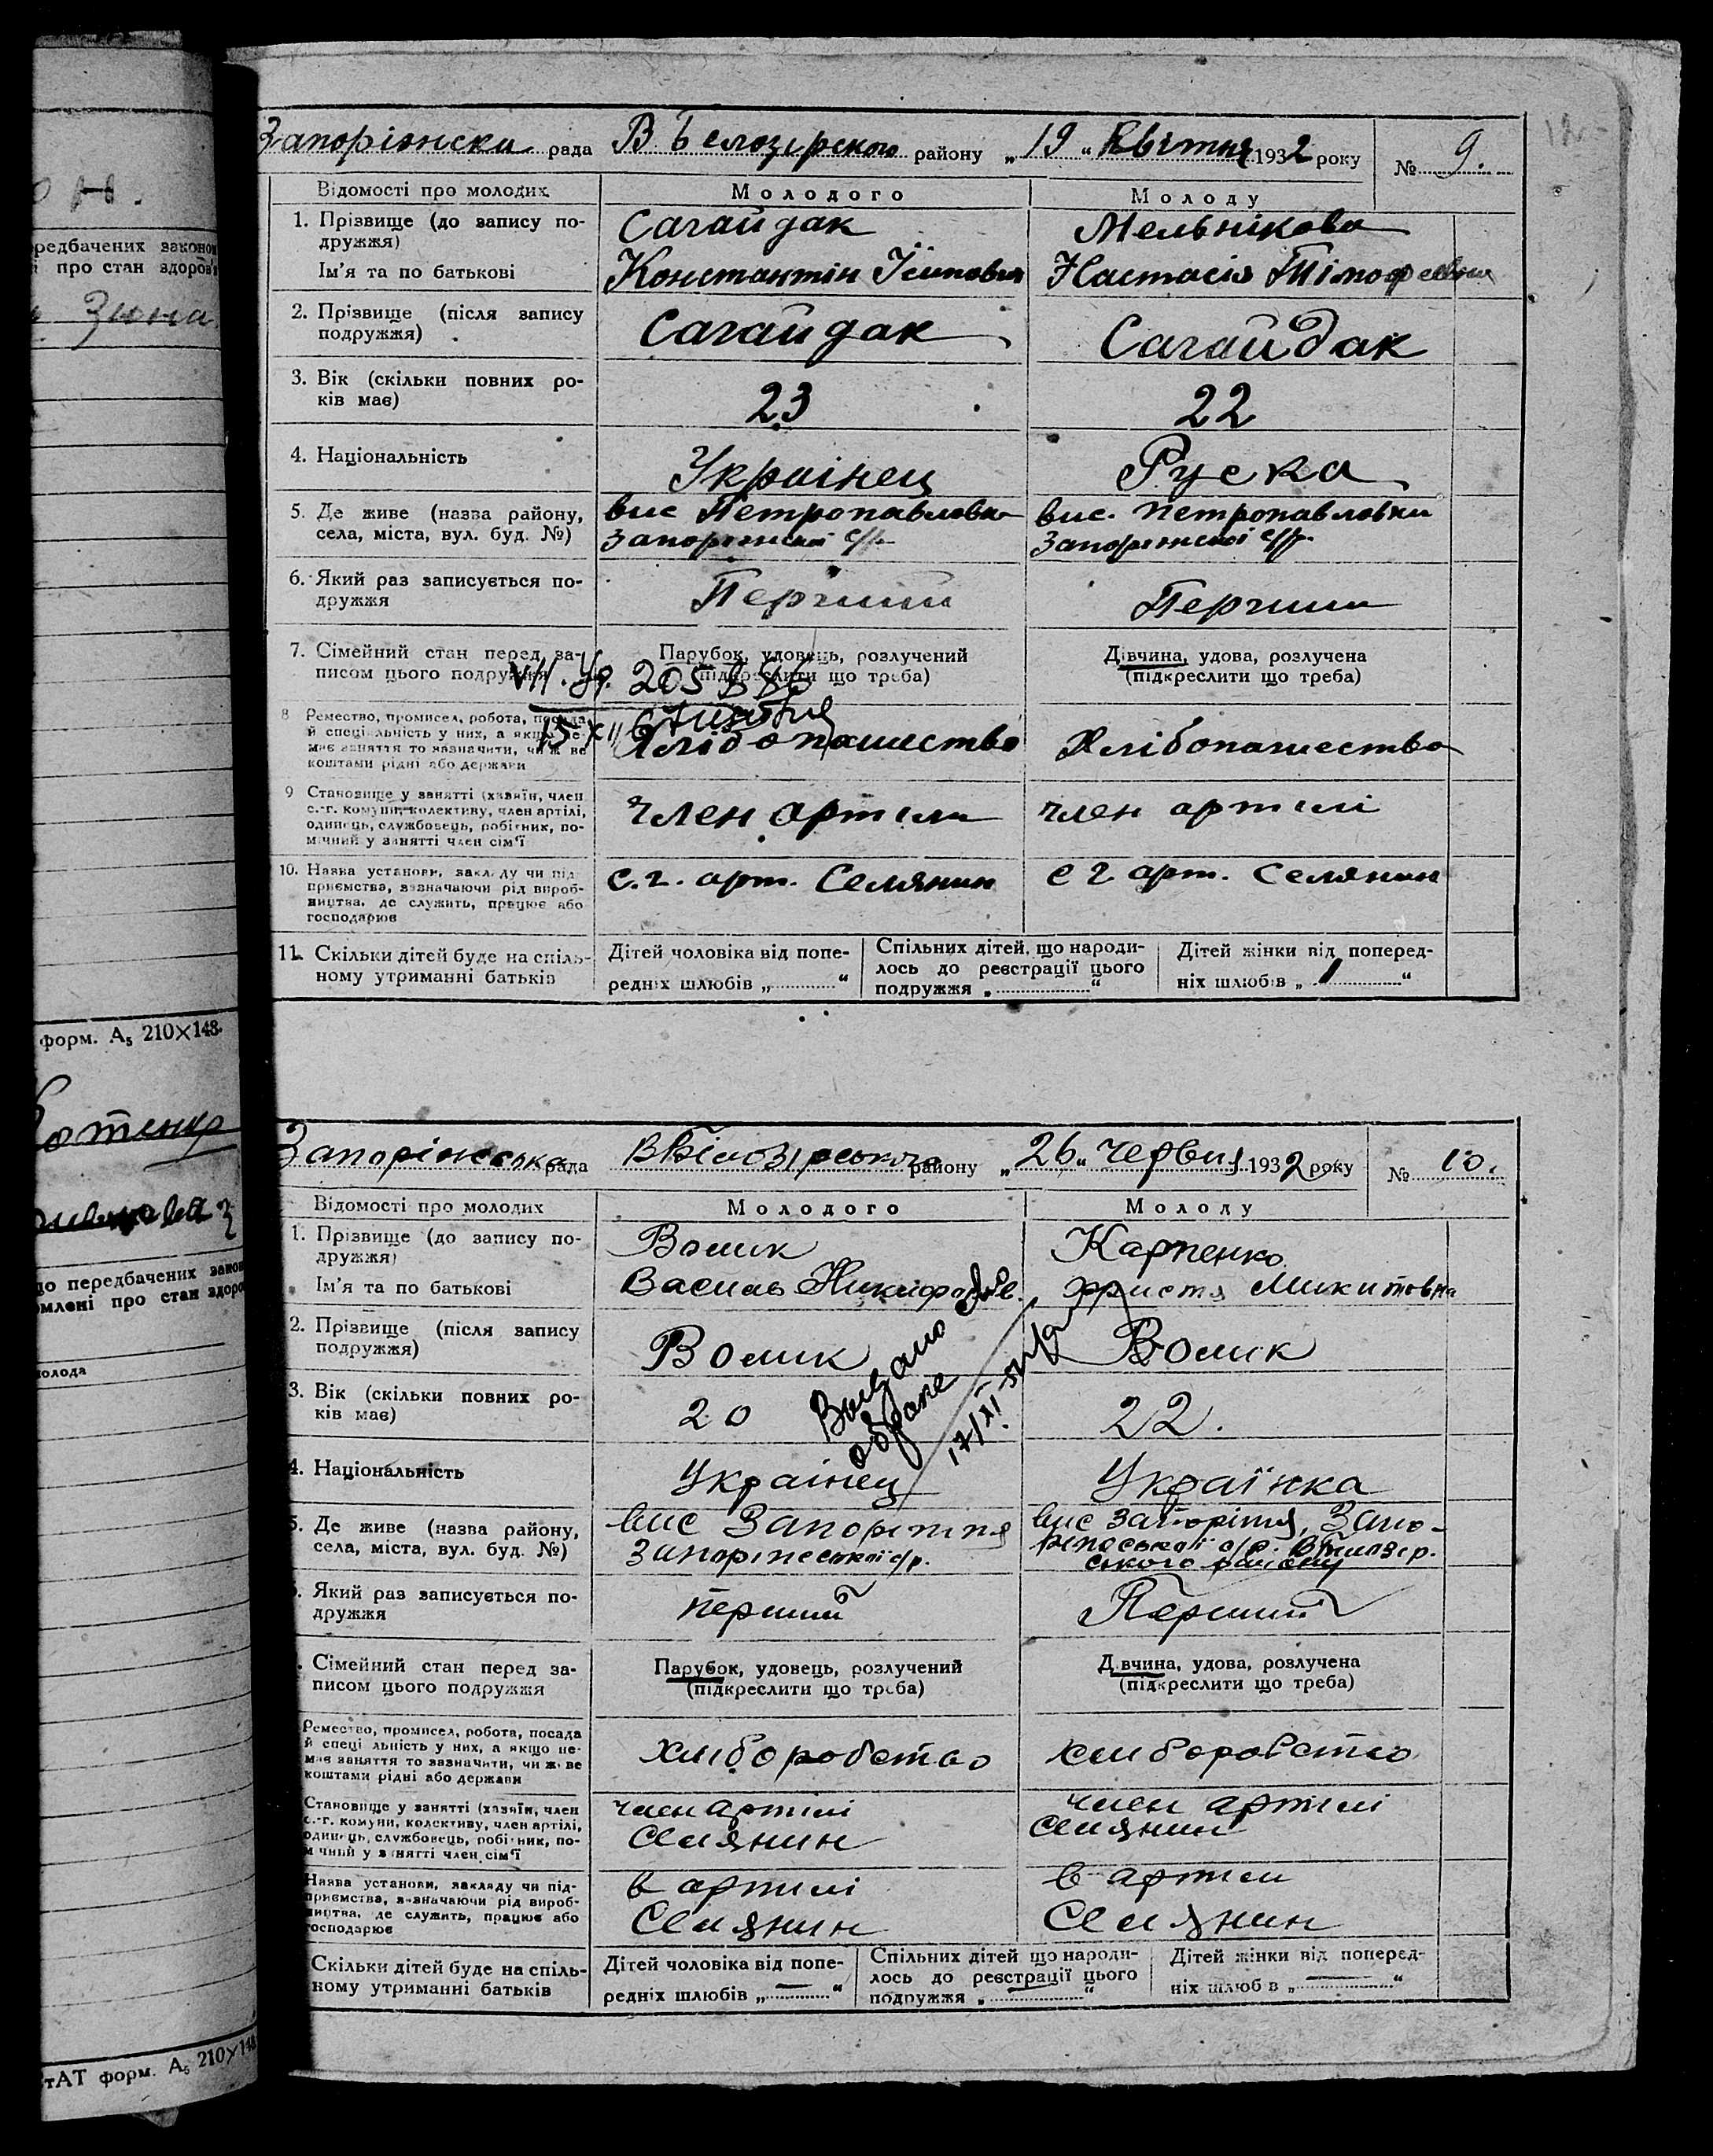 Запоріонска рада В Білозірского району „19“ Квітня 1932 року № 9.
Відомості про молодих Молодого Молоду
1. Прізвище (до запису по-
дружжя) Сагайдак Мельнікова
Ім'я та по батькові Константін Настасія Тімофеевна
2. Прізвище (після запису
подружжя) Сагайдак Сагайдак
3. Вік (скільки повних ро-
ків має) 23 22
4. Національність Украінец Руска
5. Де живе (назва району, вис Петропавловка вис. Петропавловки
села, міста, вул. буд. №) Запоріжскоі с/р. Запоріжскоі с/р.
6. Який раз записується по-
дружжя Перший Перший
7. Сімейний стан перед за- Парубок, удовець, розлучений Дівчина, удова, розлучена
писом цього подружжя (підкреслити що треба) (підкреслити що треба)
VII. Уд. 205
15 XII 67
8 Ремество, промисел, робота, посада
й спеціальність у них, а якщо не-
має заняття то зазначити, чиїм ве Хлібопашество Хлібопашество
коштами рідні або держави
9 Становище у занятті (хазяїн, член
с.-г. комуни, колективу, член артілі, член артили член артілі
одинець, службовець, робітник, по-
мічний у занятті член сім'ї
10. Назва установи, закладу чи під- с. г. арт. Селянин с г арт. Селянин
приємства, зазначаючи рід вироб-
ництва, де служить, працює або
господарює
11. Скільки дітей буде на спіль- Дітей чоловіка від попе- Спільних дітей, що народи- Дітей жінки від поперед-
ному утриманні батьків редніх шлюбів „ “ лось до реєстрації цього ніх шлюбів „ “
подружжя „ “
Запоріжська рада ВБілозірського району „26“ Червня 1932 року № 10.
Відомості про молодих Молодого Молоду
1. Прізвище (до запису по- Вовик Карпенко
дружжя)
Ім'я та по батькові Василь Никифоров. Христя Микитовна
2. Прізвище (після запису
подружжя) Вовик Вовик
3. Вік (скільки повних ро-
ків має) 20 22.
17/XI
4. Національність Украінец Українка
5. Де живе (назва району, вис Запоріжжя вис Запоріжжя, Запо-
села, міста, вул. буд. №) Запоріжської с/р. ріжської с/р. ВБілозір.
ського району
Який раз записується по-
дружжя перший Перший
Сімейний стан перед за- Парубок, удовець, розлучений Дівчина, удова, розлучена
писом цього подружжя (підкреслити що треба) (підкреслити що треба)
Ремество, промисел, робота, посада
й спеціальність у них, а якщо не-
має заняття то зазначити, чиїм ве хліборобство хліборобство
коштами рідні або держави
Становище у занятті (хазяїн, член член артілі член артілі
с.-г. комуни, колективу, член артілі, Селянин Селянин
одинець, службовець, робітник, по-
мічний у занятті член сім'ї
Назва установи, закладу чи під- в артілі в артіли
приємства, зазначаючи рід вироб-
ництва, де служить, працює або Селянин Селянин
господарює
Скільки дітей буде на спіль- Дітей чоловіка від попе- Спільних дітей що народи- Дітей жінки від поперед-
ному утриманні батьків редніх шлюбів „—“ лось до реєстрації цього ніх шлюбів „—“
подружжя „—“
он.
передбачених законом
про стан здоров'я
форм. А5 210×148.
до передбачених закон
про стан здоро
молода
форм. А5 210×148